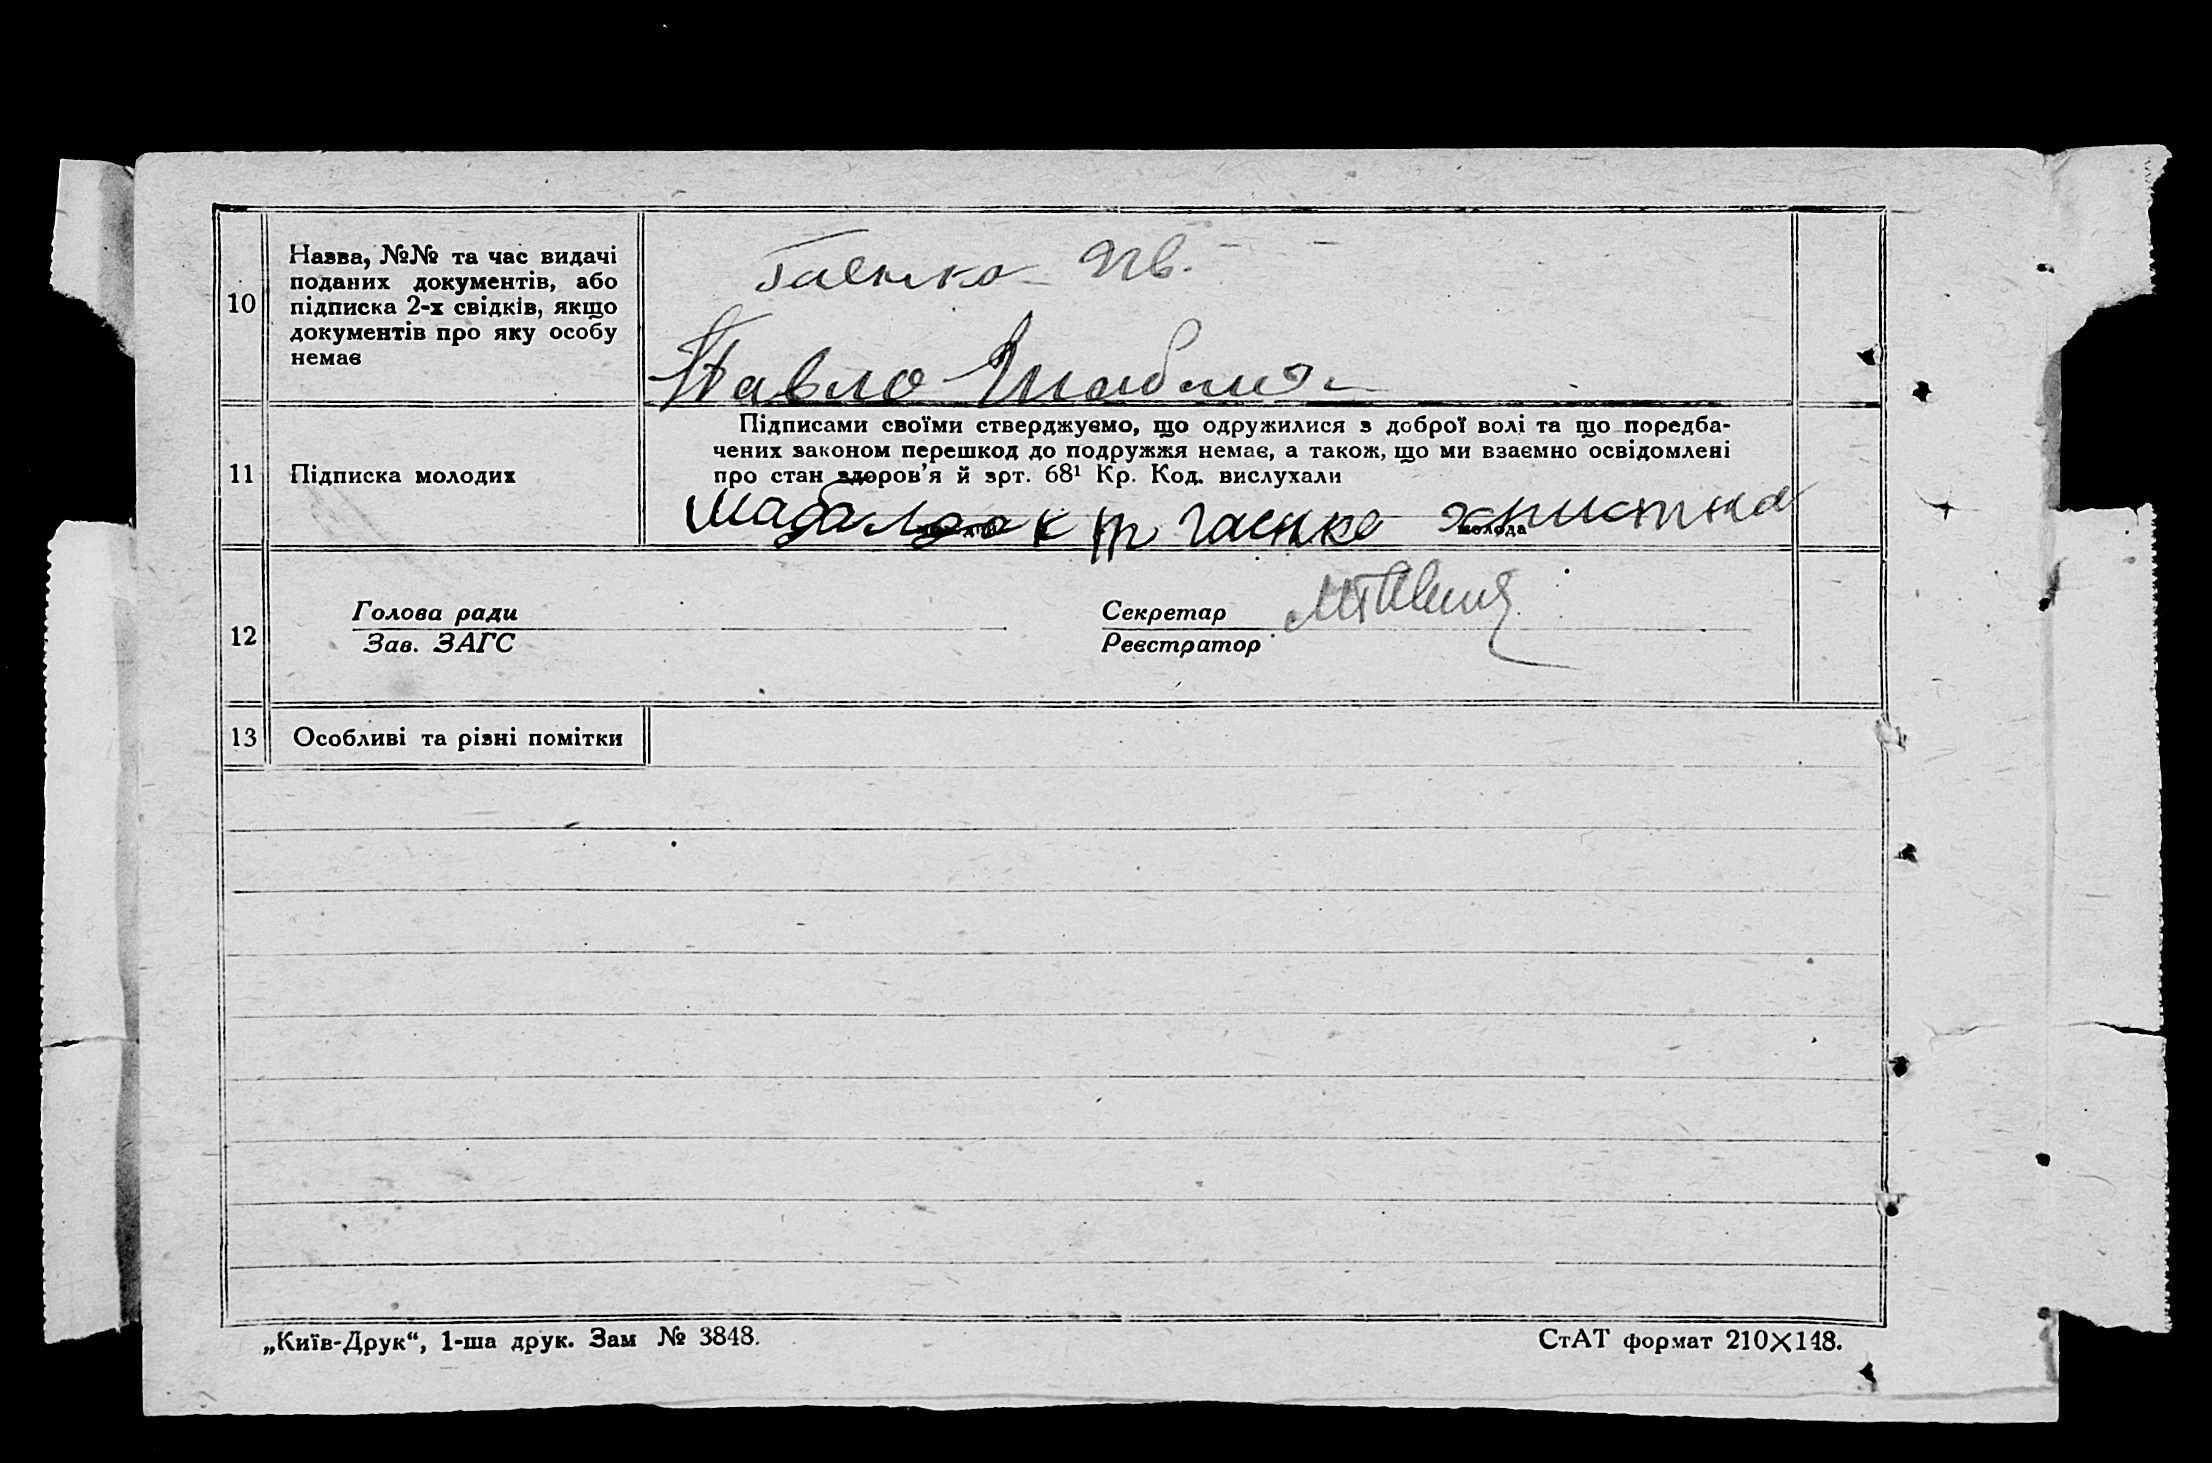 10
Назва, №№ та час видачі
поданих документів, або
підписка 2-х свідків, якщо
документів про яку особу
немає
Гаенко
Павло
11
Підписка молодих
Підписами своїми стверджуємо, що одружилися з доброї волі та що поредба-
чених законом перешкод до подружжя немає, а також, що ми взаємно освідомлені
про стан здоров'я й арт. 68¹ Кр. Код. вислухали
Гаенко христна
молода
12
Голова ради
Зав. ЗАГС
Секретар
Реєстратор
13
Особливі та різні помітки
„Київ-Друк“, 1-ша друк. Зам № 3848.
СтАТ формат 210×148.